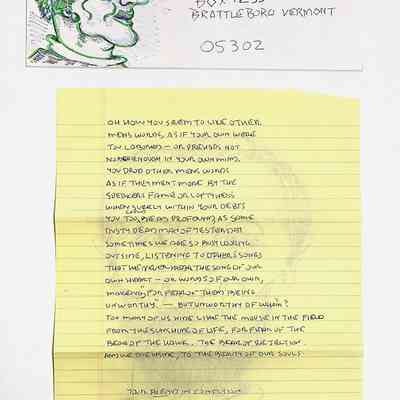 BOX 1233
BRATTLEBORO VERMONT
05302
OH HOW YOU SEEM TO LIKE OTHER
MENS WORDS, AS IF YOUR OWN WERE
TOO — OR PERHAPS NOT
ENOUGH IN YOUR OWN MIND.
YOU DROP OTHER MENS WORDS
AS IF THEY MENT MORE BY THE
SPEAKERS FAME OR LOFTYNESS
WHEN SURELY WITHIN YOUR DEBTS
YOU COULD BE AS PROFOUND AS SOME
DUSTY DEAD MAN OF YESTERDAY
SOMETIMES WE ARE SO BUSY LOOKING
OUTSIDE, LISTENING TO OTHER'S SONGS
THAT WE NEVER HEAR THE SONG OF OUR
OWN HEART — OR WORDS OF OUR OWN,
FOR FEAR OF THEM BEING
UNWORTHY — BUT UNWORTHY OF WHOM?
TOO MANY OF US HIDE LIKE THE MOUSE IN THE FIELD
FROM THE SUNSHINE OF LIFE, FOR FEAR OF THE
OF THE HAWK. THE FEAR OF REJECTION.
AND WE DIE INSIDE, TO THE BEAUTY OF OUR SOULS.
YOUR FRIEND IN